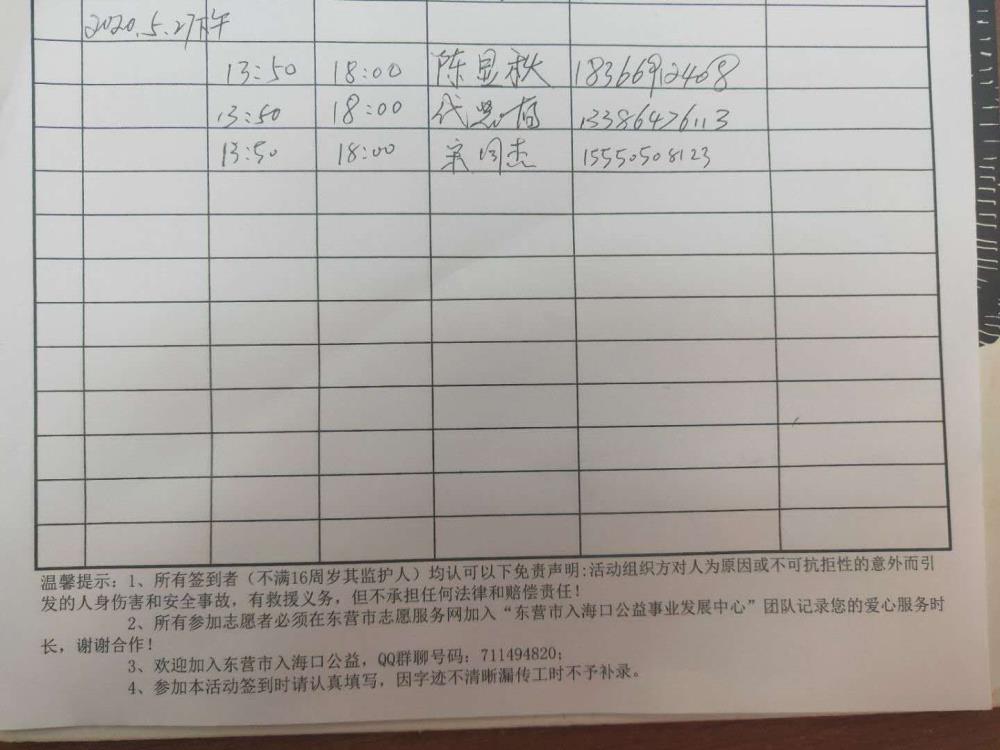 2020.5.27下午
13:50 18:00 陈显秋 18366912408
13:50 18:00 代 13386476113
13:50 18:00 宋同杰 15550508123
温馨提示：1、所有签到者（不满16周岁其监护人）均认可以下免责声明:活动组织方对人为原因或不可抗拒性的意外而引
发的人身伤害和安全事故，有救援义务，但不承担任何法律和赔偿责任！
2、所有参加志愿者必须在东营市志愿服务网加入“东营市入海口公益事业发展中心”团队记录您的爱心服务时
长，谢谢合作！
3、欢迎加入东营市入海口公益，QQ群聊号码：711494820；
4、参加本活动签到时请认真填写，因字迹不清晰漏传工时不予补录。